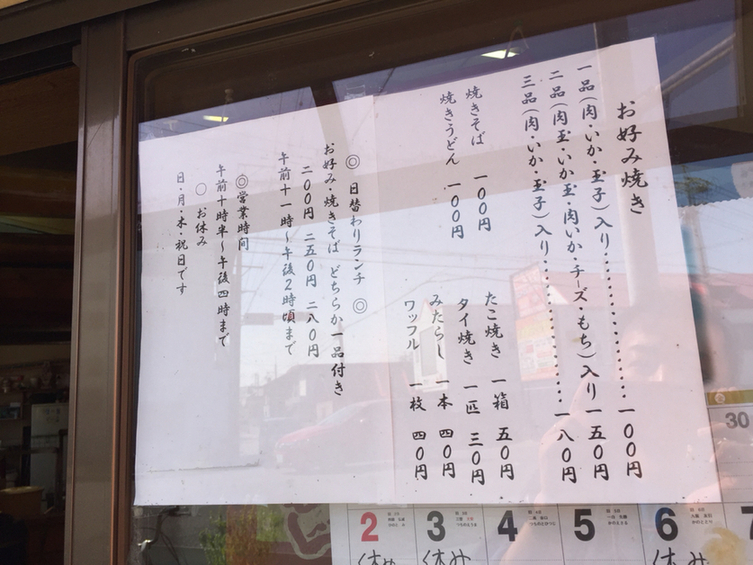 お好み焼き
一品(肉・いか・玉子)入り............一〇〇円
二品(肉玉・いか玉・肉いか・チーズ・もち)入り一五〇円
三品(肉・いか・玉子)入り............一八〇円
焼きそば 一〇〇円
焼きうどん 一〇〇円
たこ焼き 一箱 五〇円
タイ焼き 一匹 三〇円
みたらし 一本 四〇円
ワッフル 一枚 四〇円
◎ 日替わりランチ ◎
お好み・焼きそば どちらか一品付き
二〇〇円 二五〇円 二八〇円
午前十一時〜午後2時頃まで
◎営業時間
午前十時半〜午後四時まで
○ お休み
日・月・木・祝日です
30
2 3 4 5 6 7
休み 休み 休み